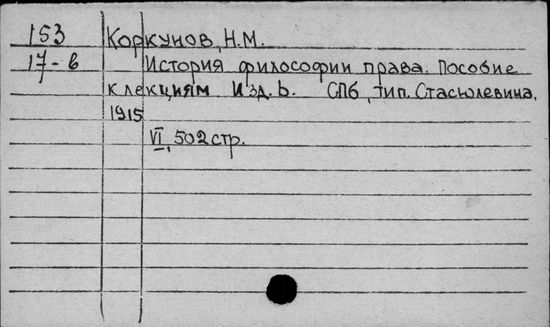 153 Коркунов, Н.М.
17-в История философии права. Пособие
к лекциям Изд. Ь. СПб, тип. Стасюлевича,
1915
VI, 502 стр.